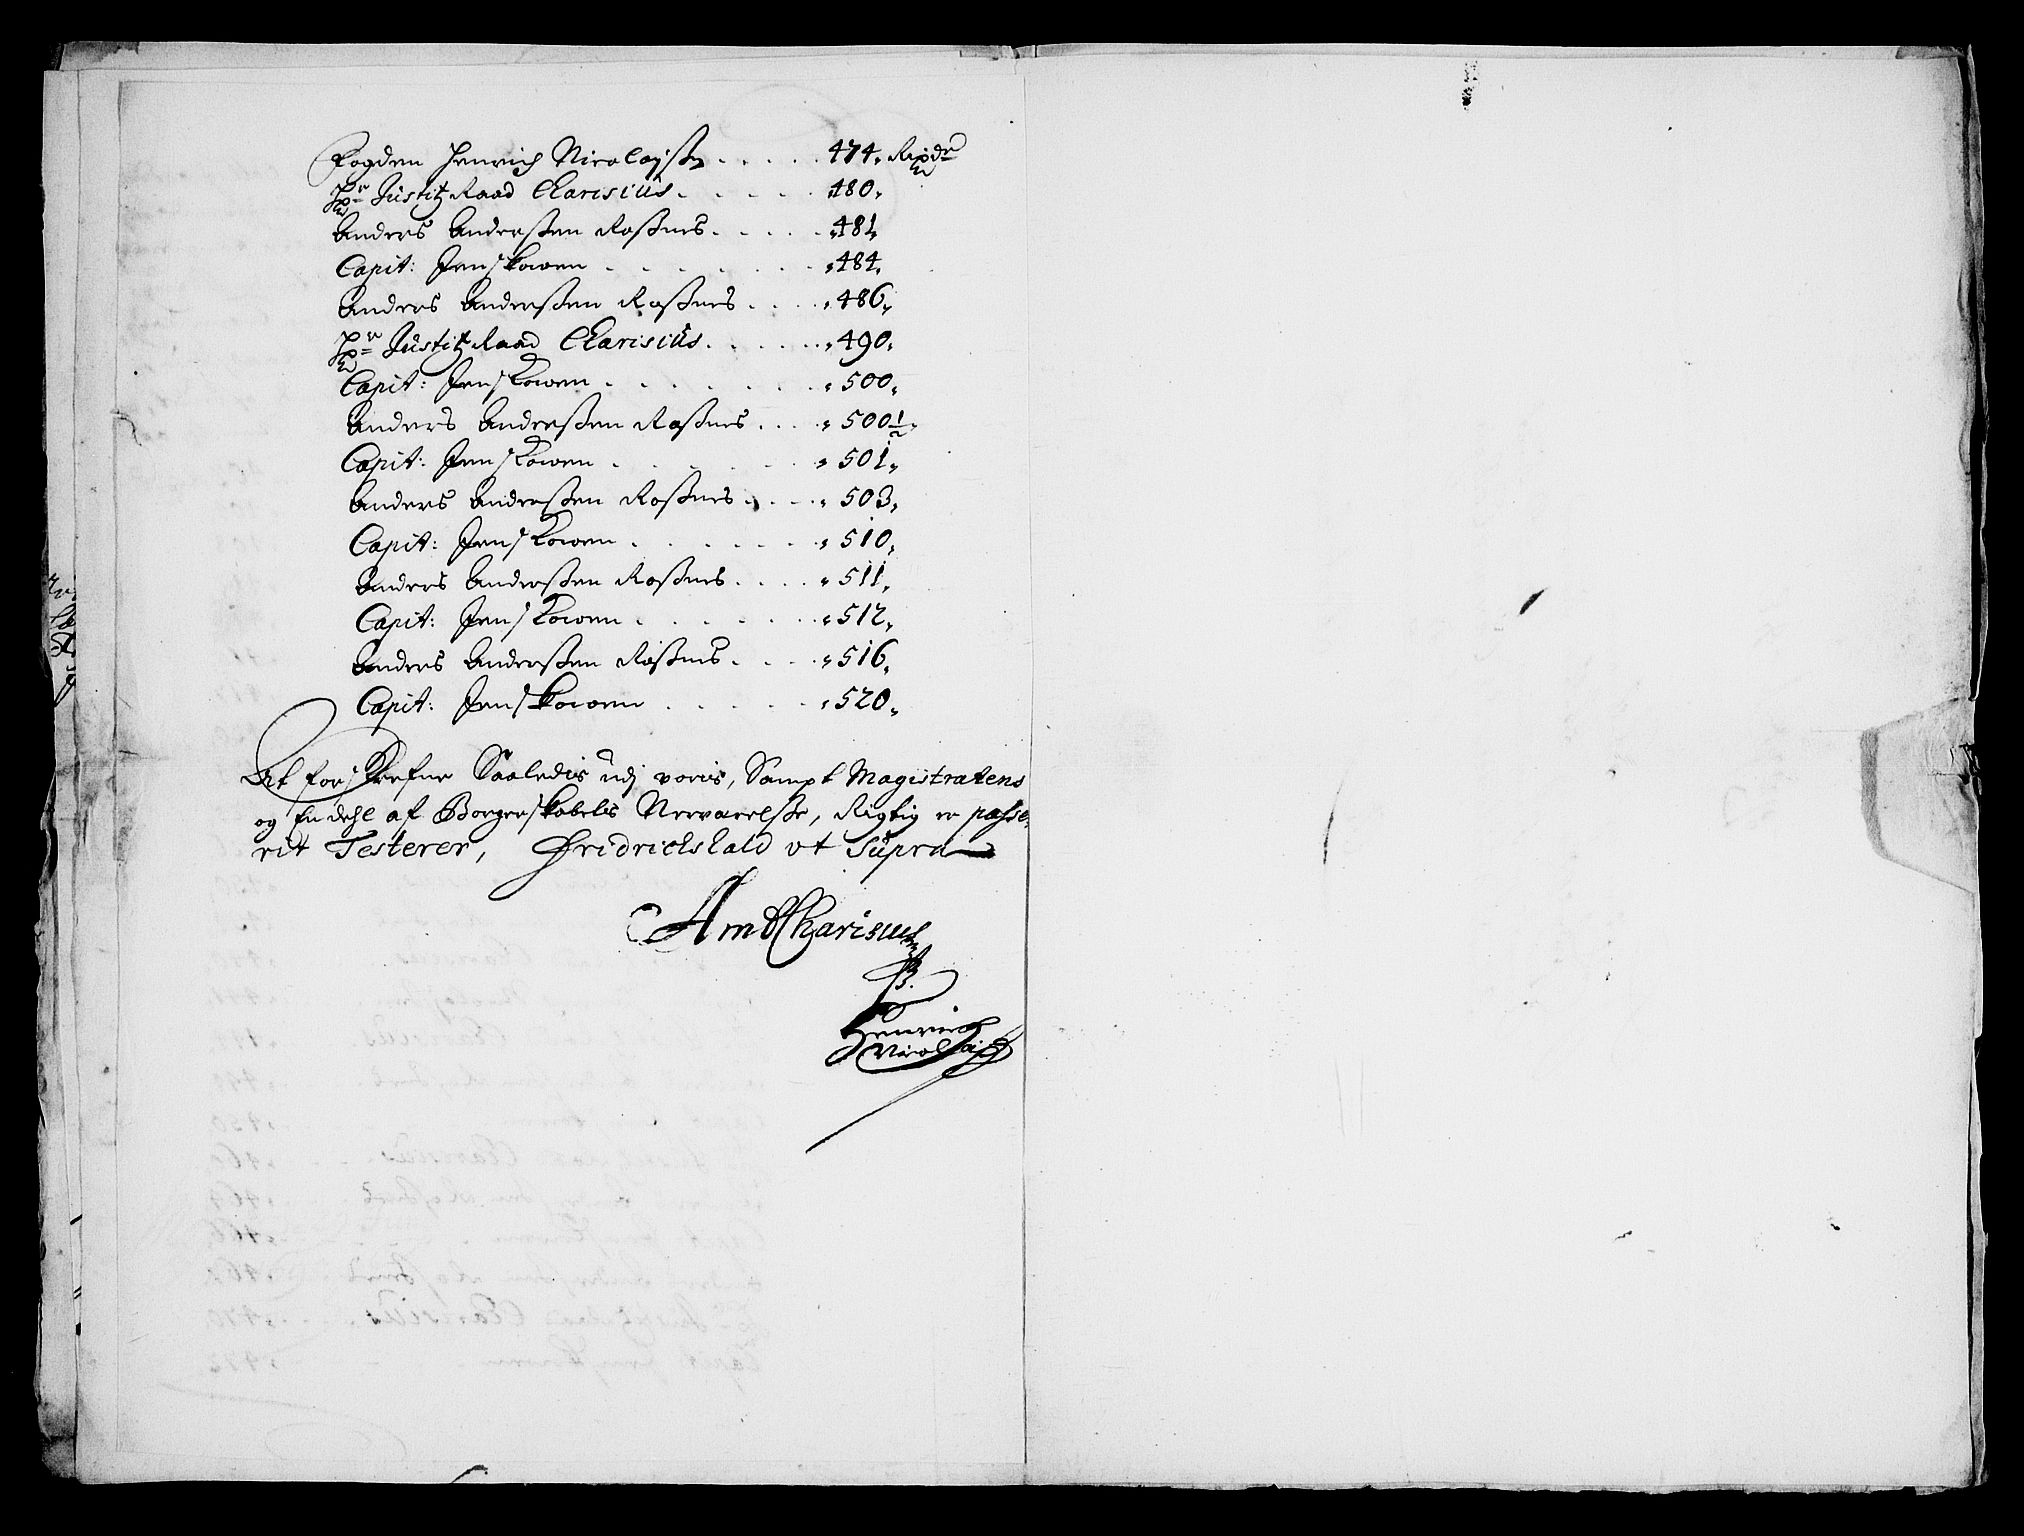 Fogden Henrich Nicolaysen . . . . . 474. Rixdr
Hr Justitz Raad Charisius . . . . . 480.
Anders Anderssen Rossnes . . . . . 481.
Capit: Jens Kowen . . . . . . . 484.
Anders Anderssen Rossnes . . . . . 486.
Hr Justitz Raad Charisius . . . . . . 490.
Capit: Jens Kowen . . . . . . 500.
Anders Anderssen Rossnes . . . . 500 1/2.
Capit: Jens Kowen . . . . . . 501.
Anders Anderssen Rossnes . . . . 503.
Capit: Jens Kowen . . . . . . 510.
Anders Anderssen Rossnes . . . . 511.
Capit: Jens Kowen . . . . . . 512.
Anders Anderssen Rossnes . . . . 516.
Capit: Jens Kowen . . . . . . 520.
At forskrefne Saaledis udj voris, Sampt Magistratens
og En dehl af Borgerskabetis Nerværelsse, Rigtig er passe,
rit Testerer, Fridrichshald ut Supra
Amb Charisius
Henrich
Nicolaiss